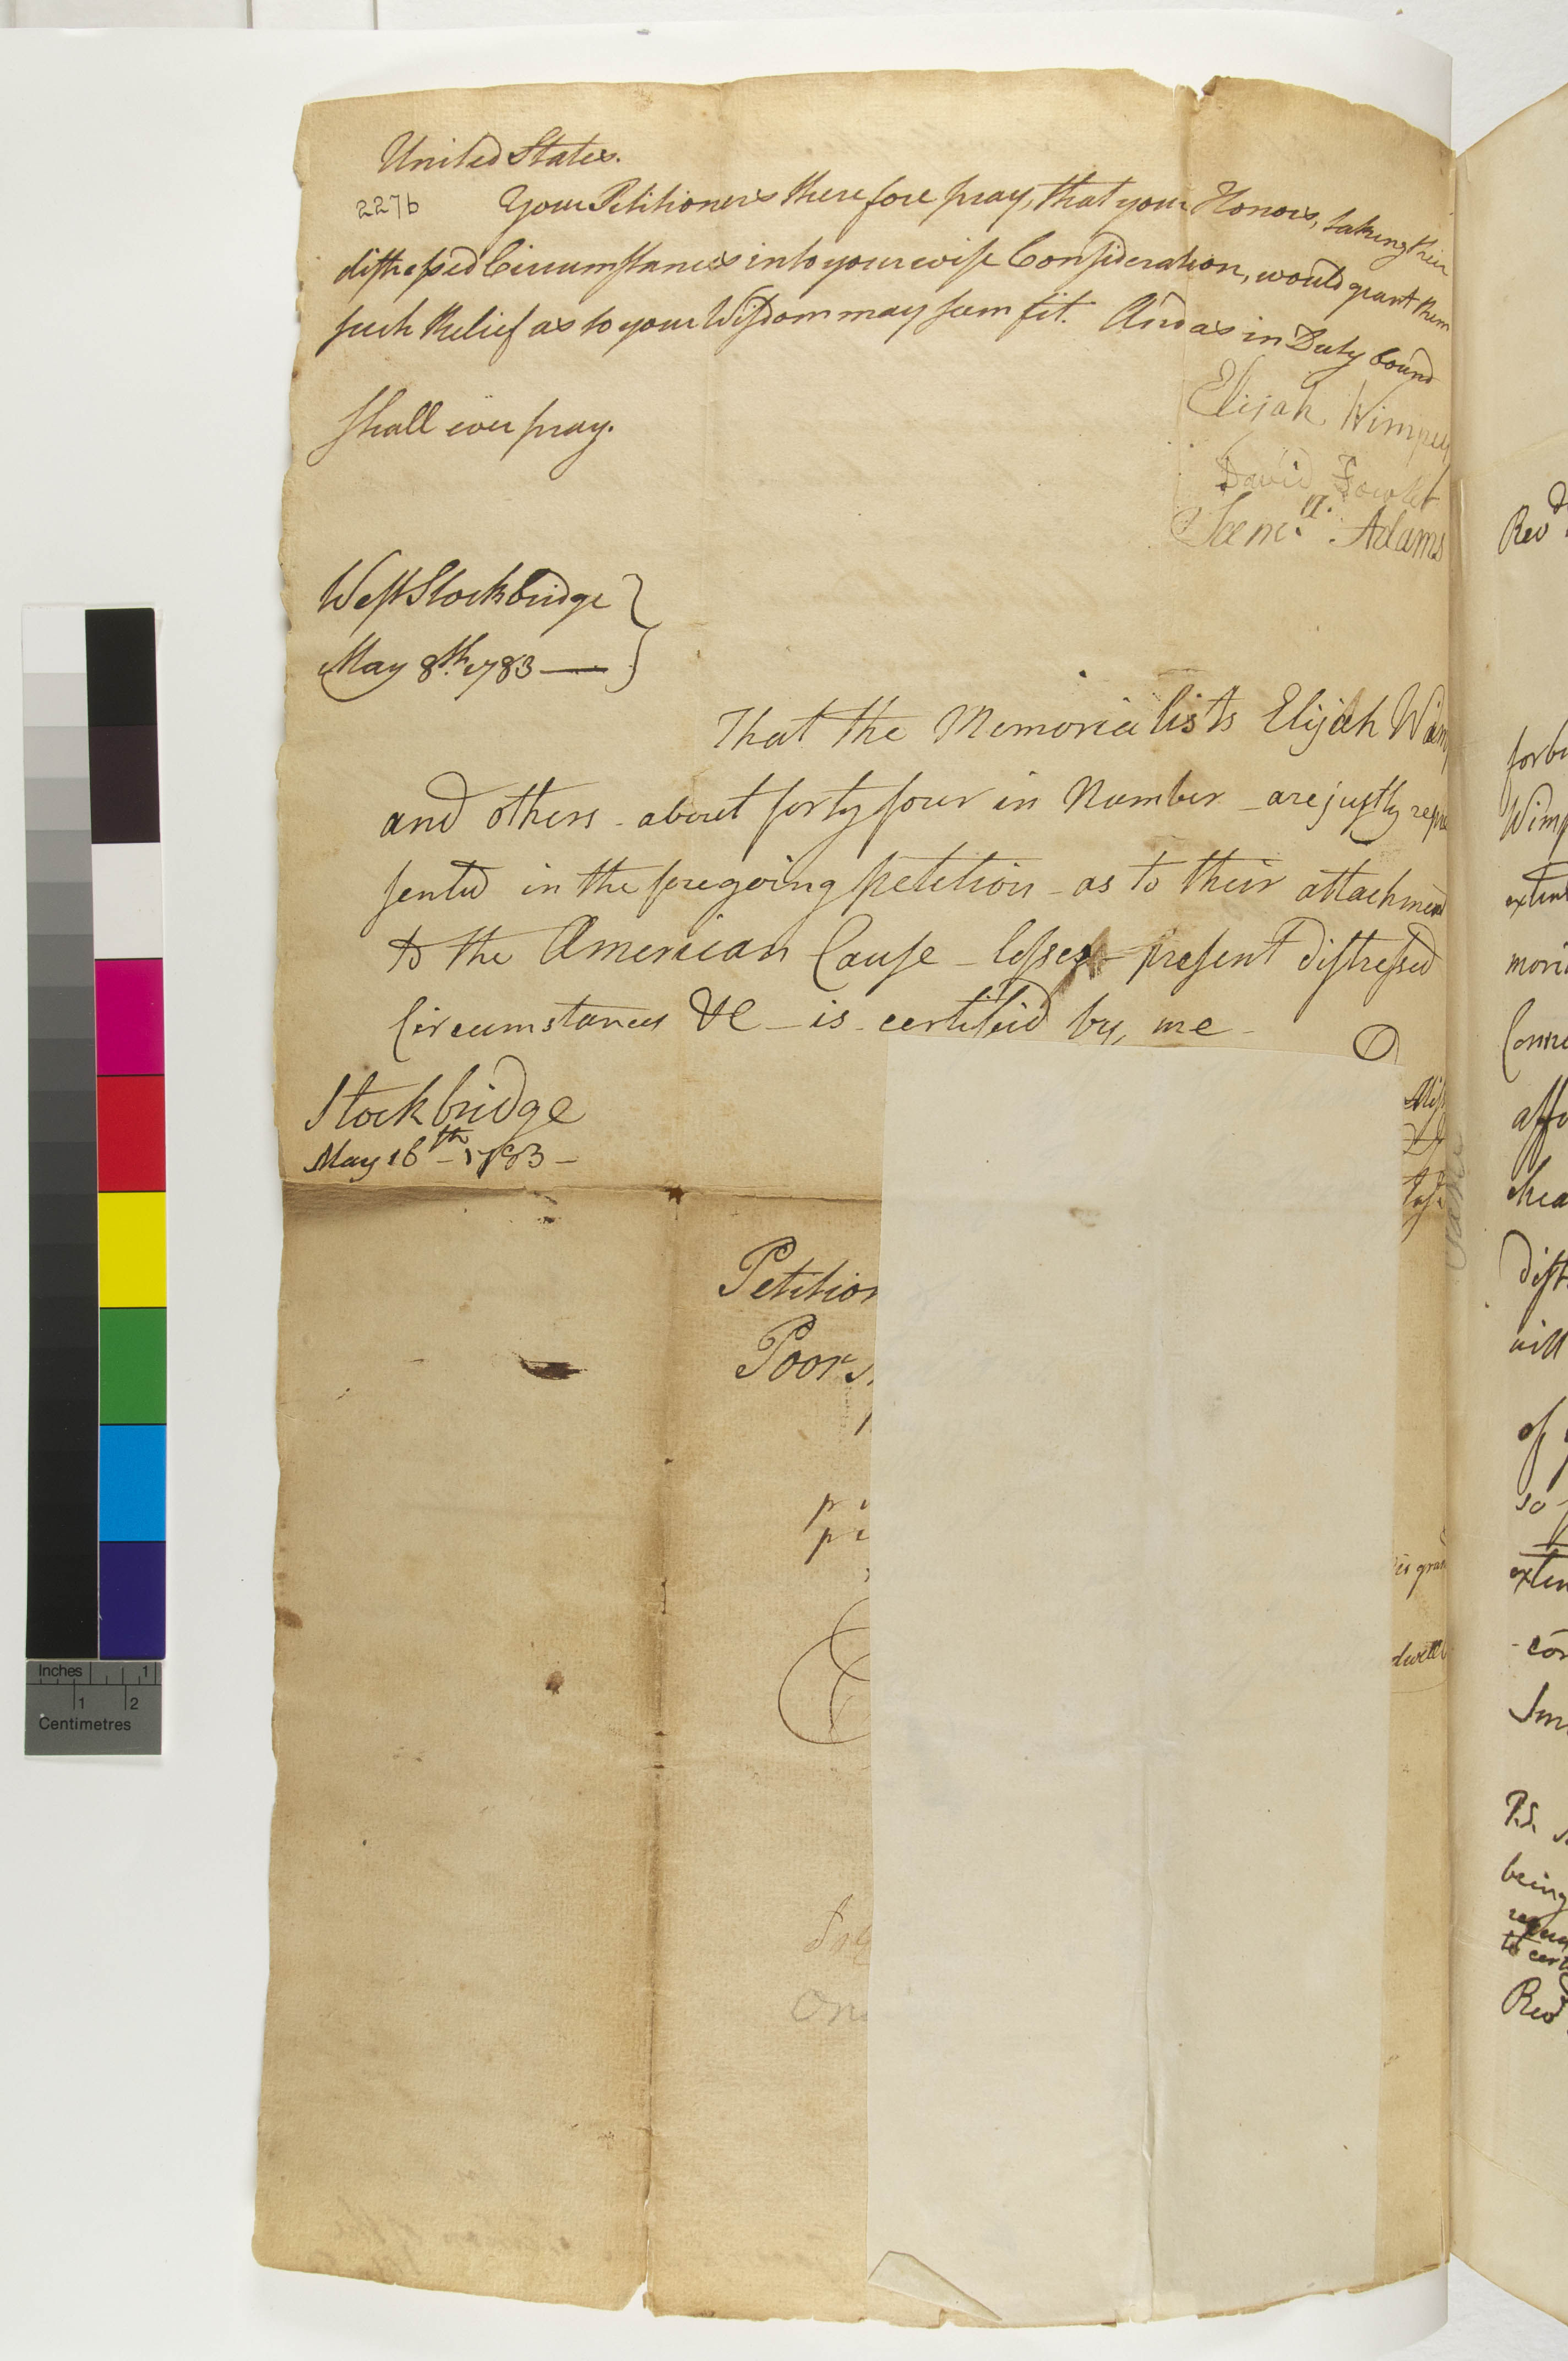 United States.
227b
Your Petitioners therefore pray, that your Honors, taking their
distressed Circumstances into your wise Consideration, would grant them
such Relief as to your Wisdom may seem fit. And as in Duty bound
shall ever pray.
Elijah Wimpey
David Fowler
Sam.ll Adams
West Stockbridge
May 8th. 1783 —
That the Memorialists Elijah Wim
and others - about forty four in Number - are justly repre
sented in the foregoing petition - as to their attachment
to the American Cause - losses - present distressed
Circumstances &c - is certified by me -
Stockbridge
May 16th - 1783 -
Petition
Poor
Inches 1
1 2
Centimetres
Revd
forbi
Wimp
exten
mori
Conne
affo
chea
dist
will
of
so
exten
con
P.S.
being
to cert
Revd